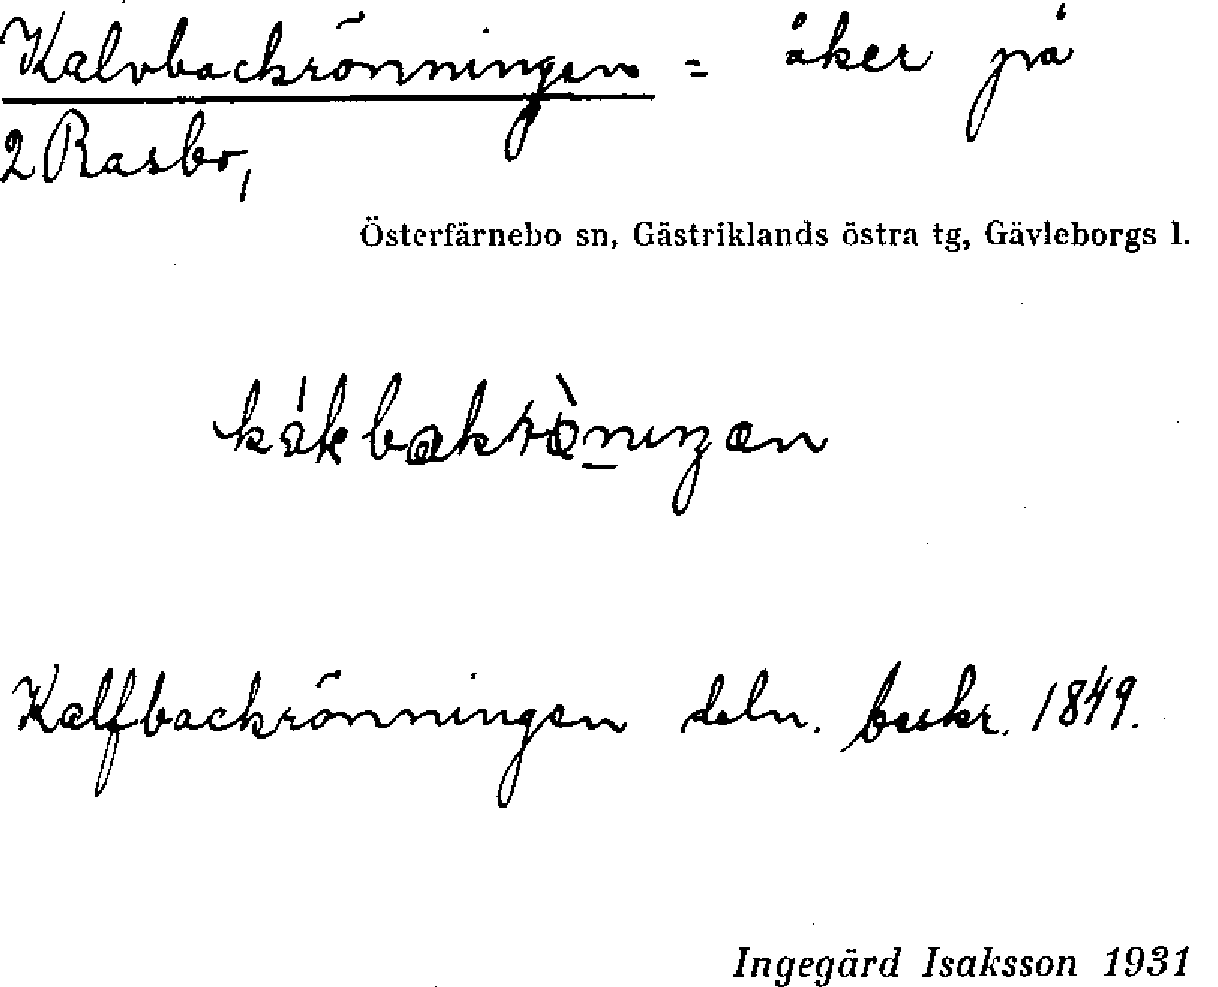 Kalvbackrönningen = åker på
2 Rasbo,
Österfärnebo sn, Gästriklands östra tg, Gävleborgs l.
Kalfbackrönningen deln. beskr. 1849.
Ingegärd Isaksson 1931